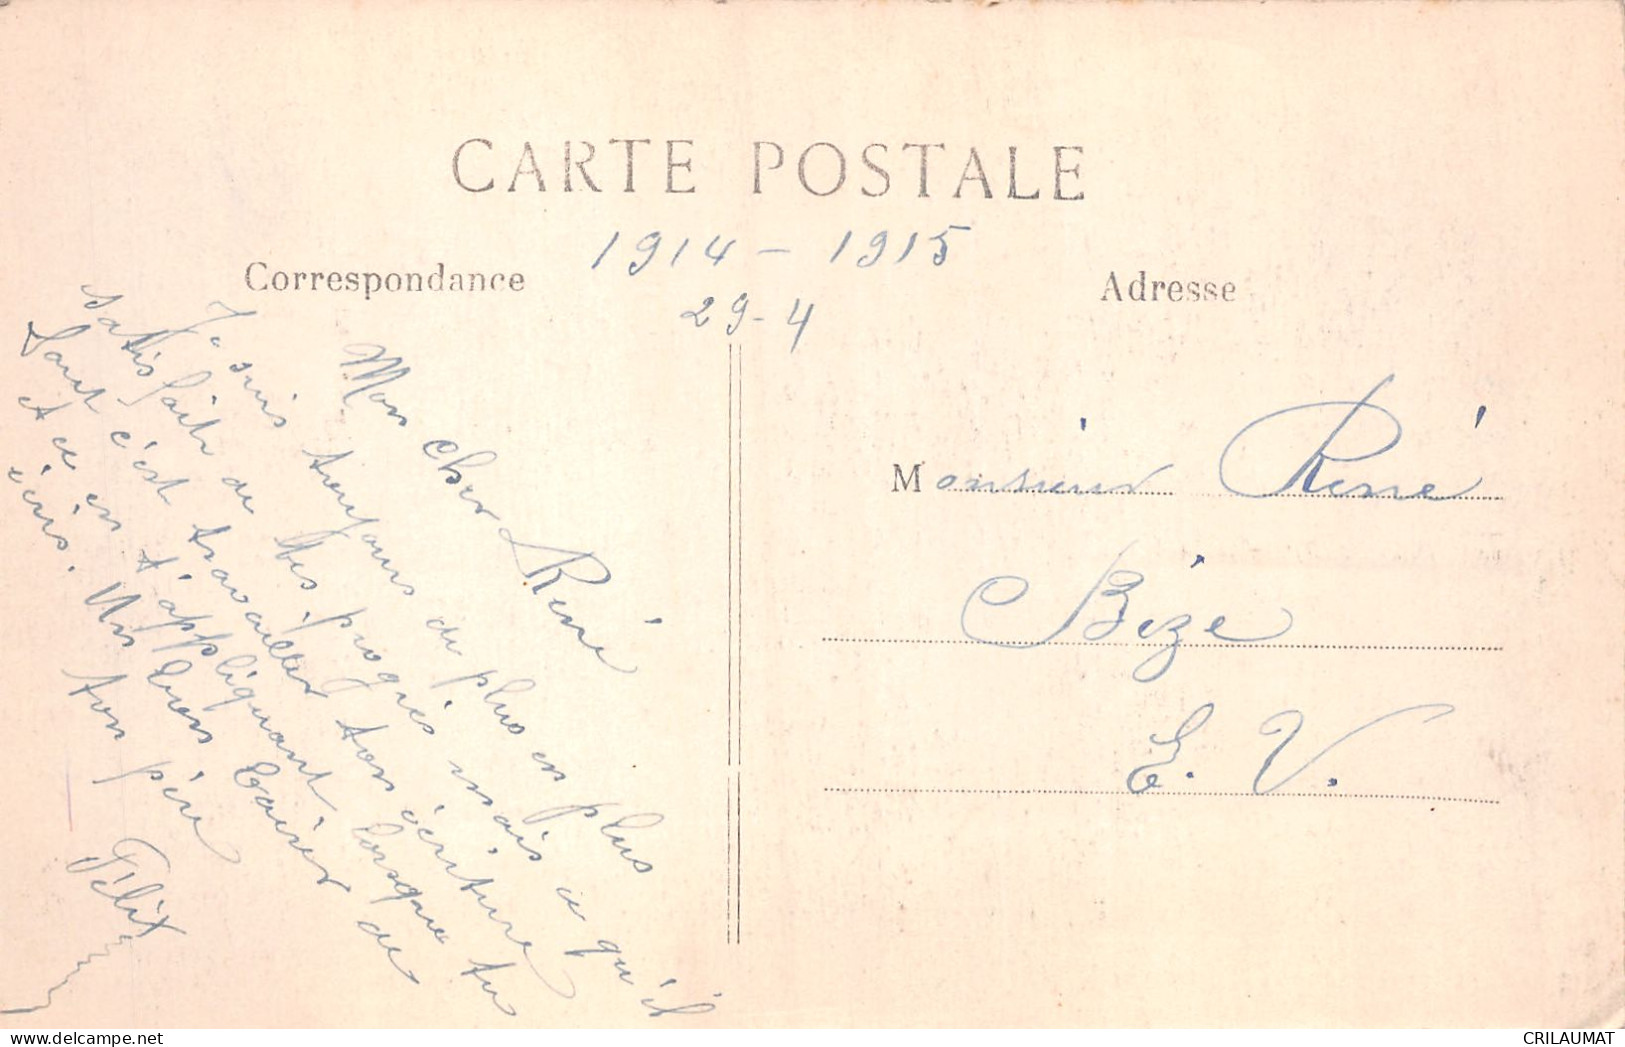 CARTE POSTALE
1914 - 1915
Correspondance
29-4
Adresse
Mon cher René
Je suis toujours de plus en plus
satisfait de tes progrès mais ce qu'il
faut c'est travailler ton écriture
et ce en t'appliquant lorsque tu
écris. Un bon baiser de
ton père
Félix
Monsieur René
Bèze
E. V.
CRILAUMAT